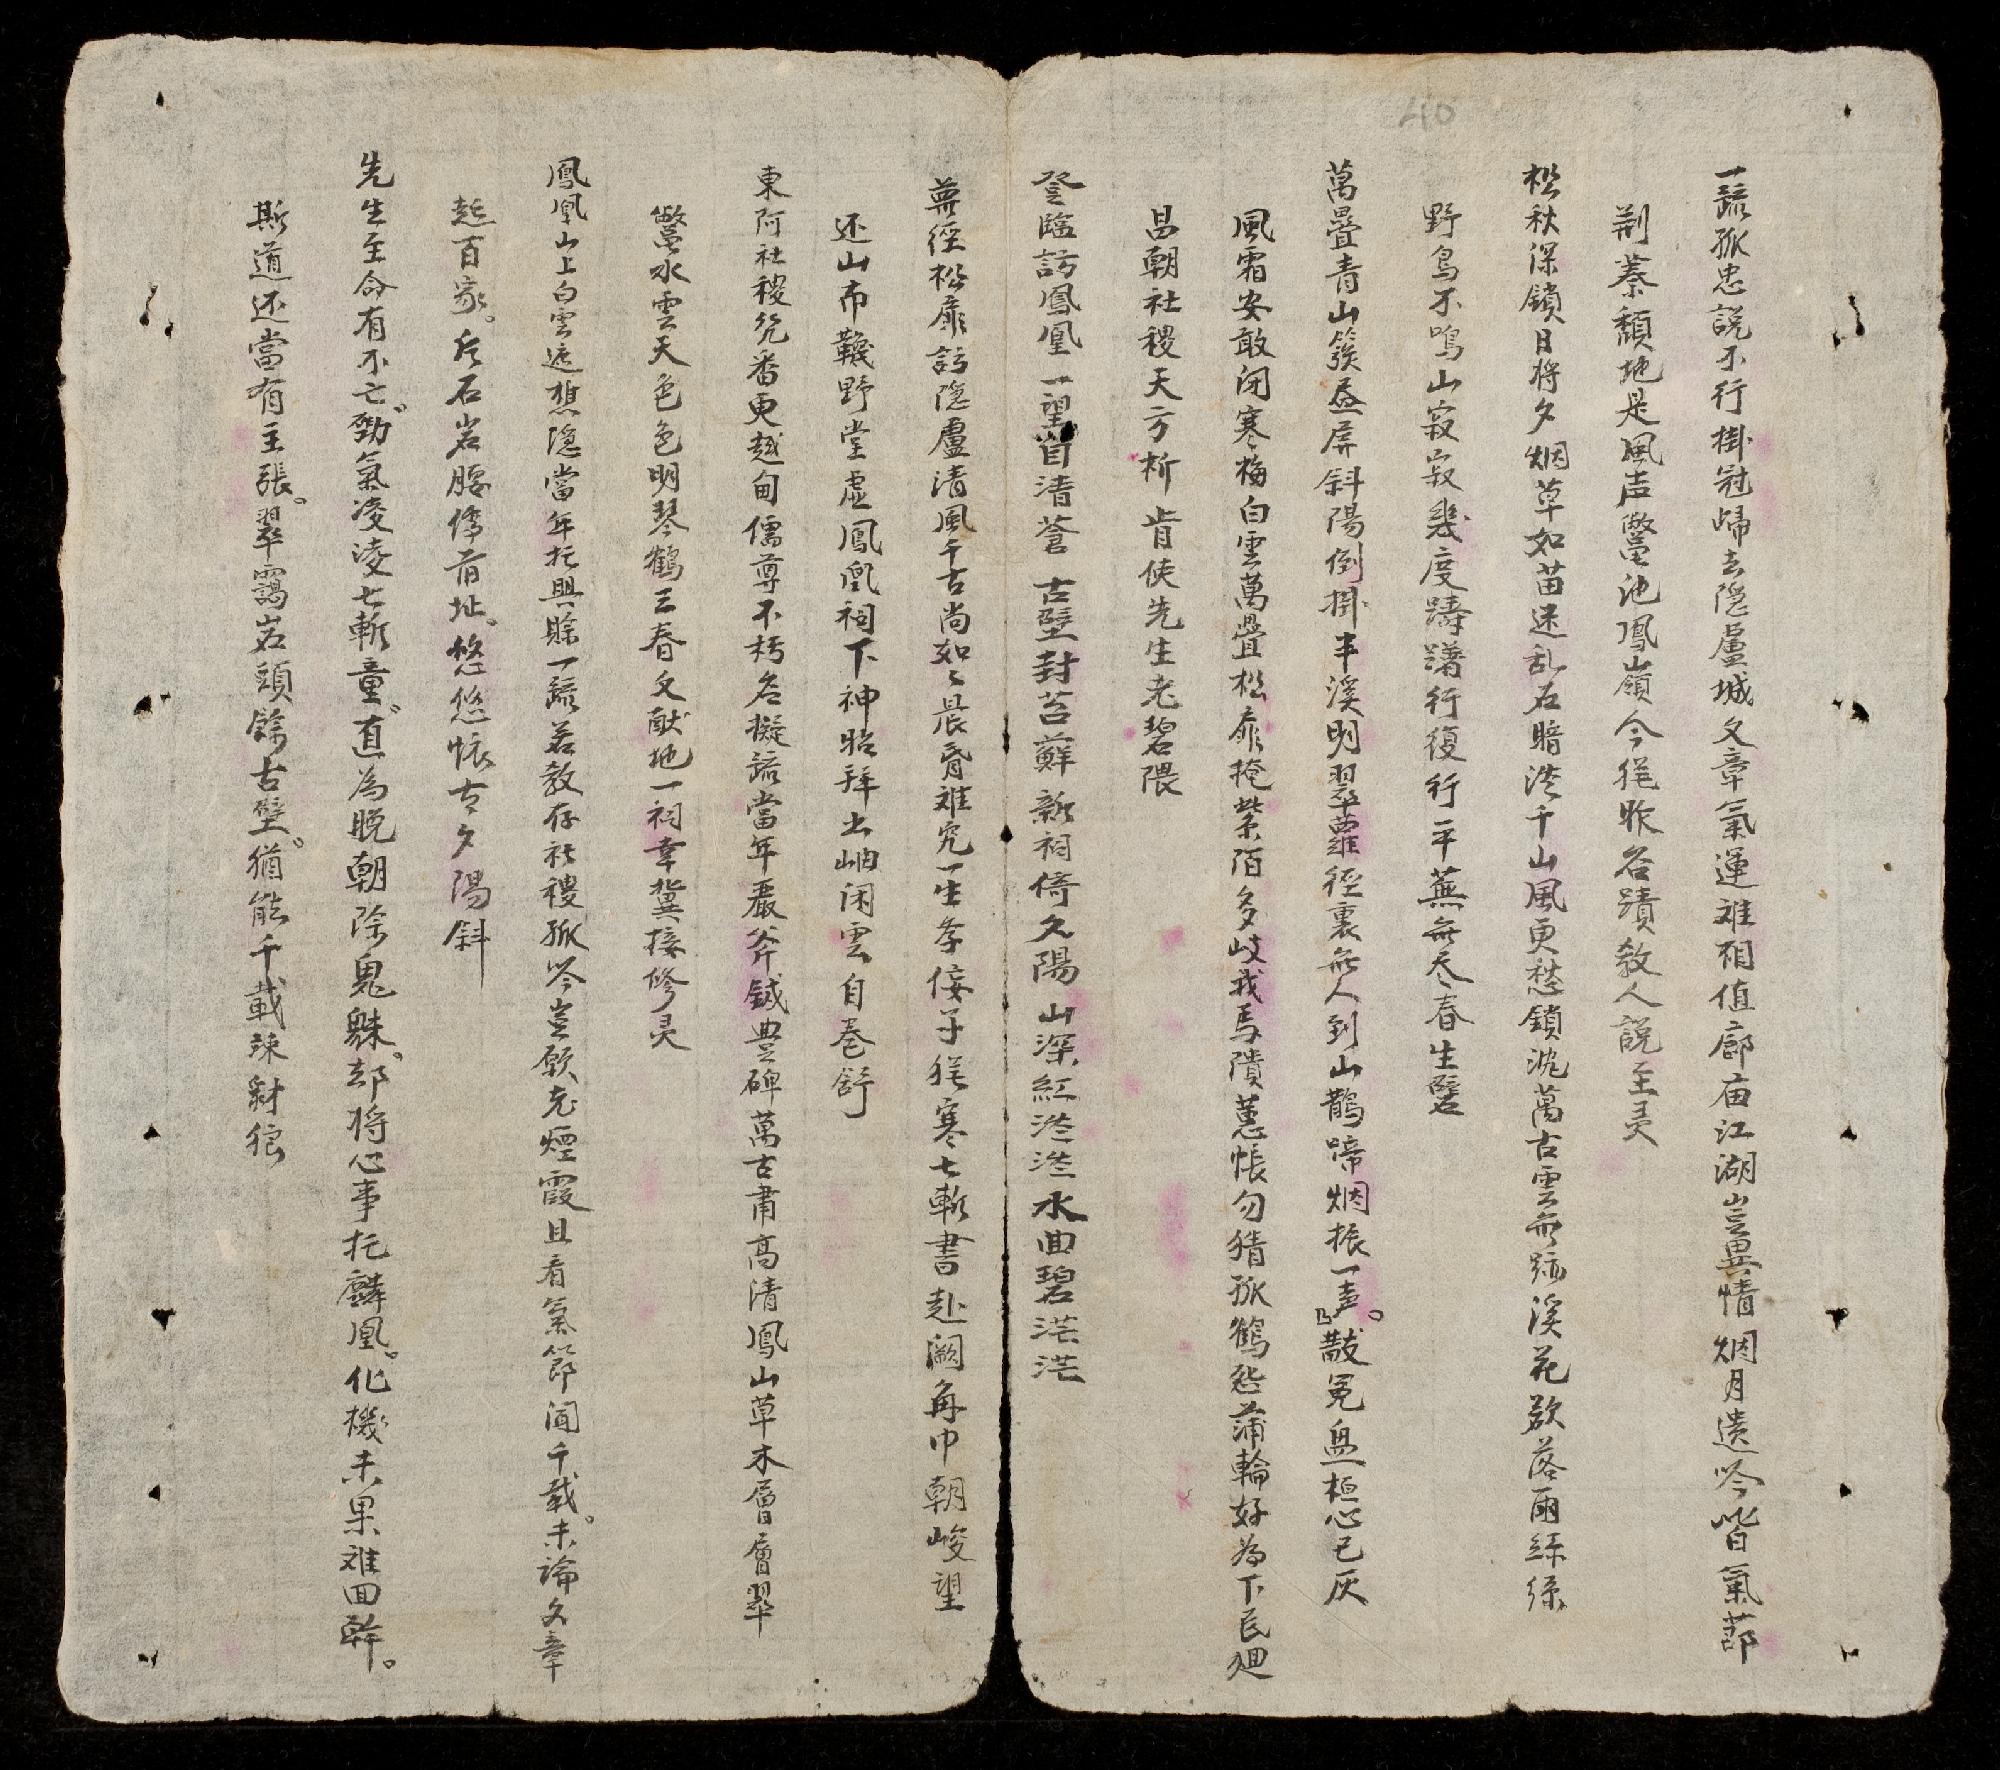 一疏孤忠說不行掛冠歸去隐廬城文章氣運难相值廊庙江湖豈異情烟月遺吟皆氣節
荆蓁頹地是風声鱉池鳳嶺今猶昨名蹟教人說至灵
松秋深鎖日将夕烟草如苗迷乱石暗淡千山風更愁鎖沈萬古雲無跡溪花欲落雨絲絲
野鳥不鳴山寂寂幾度躊躇行復行平蕪無尽春生碧
萬疊青山簇昼屏斜陽倒掛半溪明翠蘿徑裏無人到山鵲啼烟振一声鼓冕盘桓心已灰
風霜安敢闭寒梅白雲萬疊松扉掩紫陌多岐我馬隤蕙帳勿猜孤鶴怨蒲輪好為下民廻
昌朝社稷天方祈肯使先生老碧隈
登臨訪鳳凰一望首清蒼古壁封苔蘚新祠倚夕陽山深紅淡淡水曲碧茫茫
蓽徑松扉訪隐廬清風千古尚如晨昏难究一生孝侫子猶寒七斬書赴闕角巾朝峻望
还山布韈野堂虚鳳凰祠下神昭拜出岫闲雲自卷舒
東阿社稷兊番更越甸儒尊不朽名擬疏當年嚴斧鉞豊碑萬古肅高清鳳山草木層層翠
鱉水雲天色色明琴鶴三春文献地一祠幸冀接修灵
鳳凰山上白雲遮想隐當年托興賖一疏若教存社稷孤吟豈願老煙霞且看氣節闻千载未論文章
起百家片石岩腰傳旧址悠悠懐古夕陽斜
先生至命有不亡勁氣凌凌七斬章直為晚朝除鬼魅却将心事托麟凰化機未果难回斡
斯道还當有主張翠靄岩頭餘古壁猶能千載竦豺狼